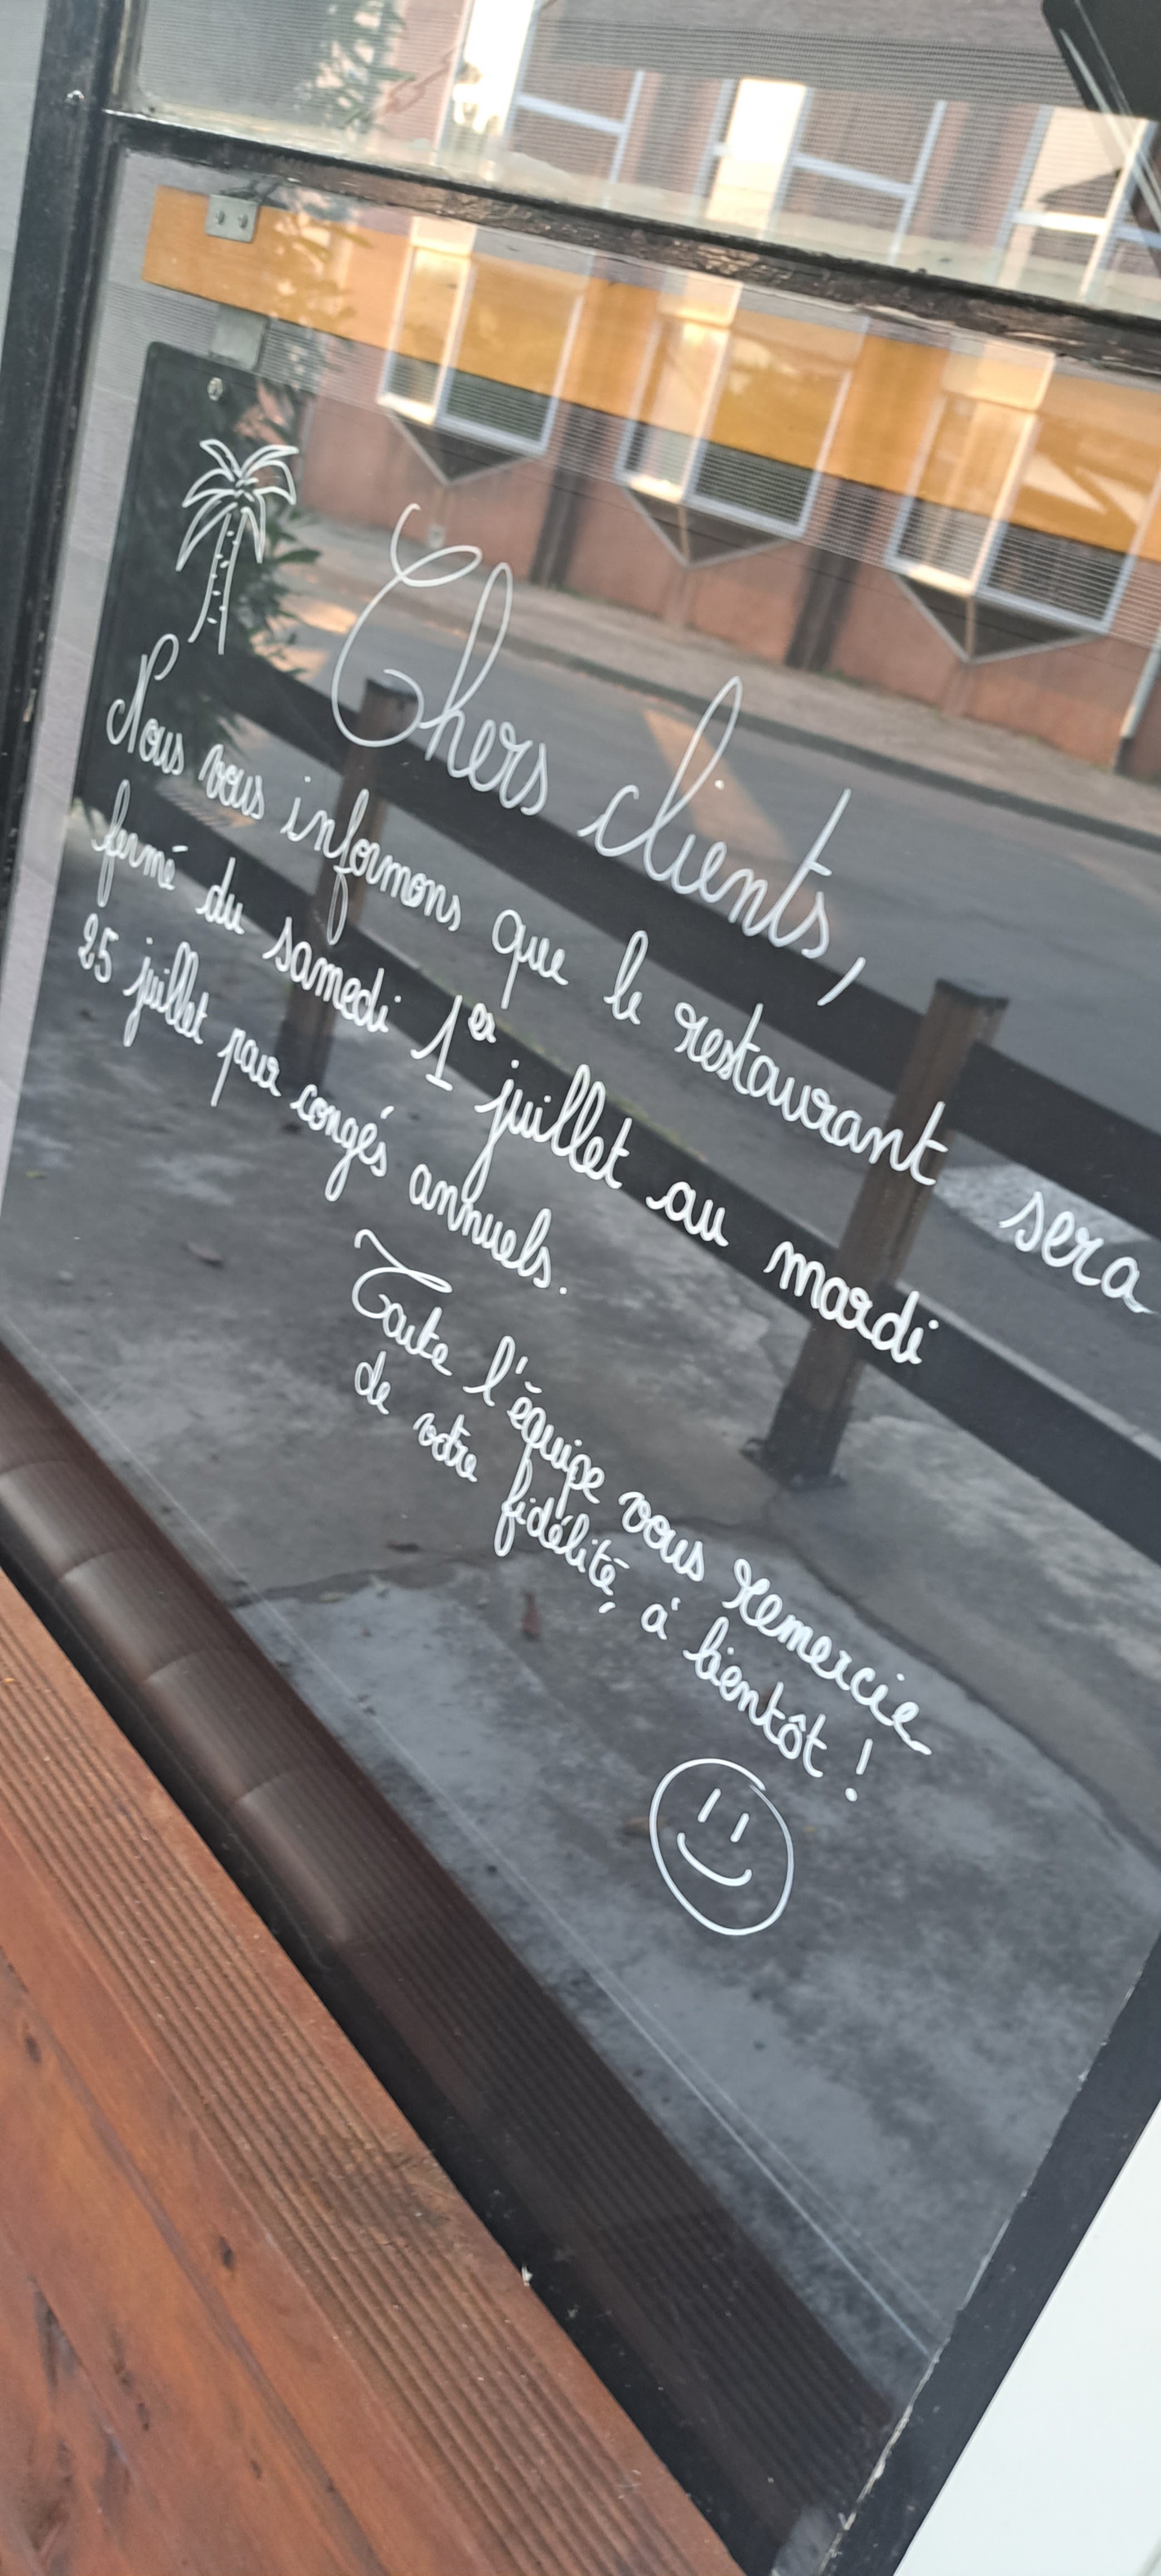 Chers clients,
Nous vous informons que le restaurant sera
fermé du samedi 1er juillet au mardi
25 juillet pour congés annuels.
Toute l'équipe vous remercie
de votre fidélité, à bientôt !